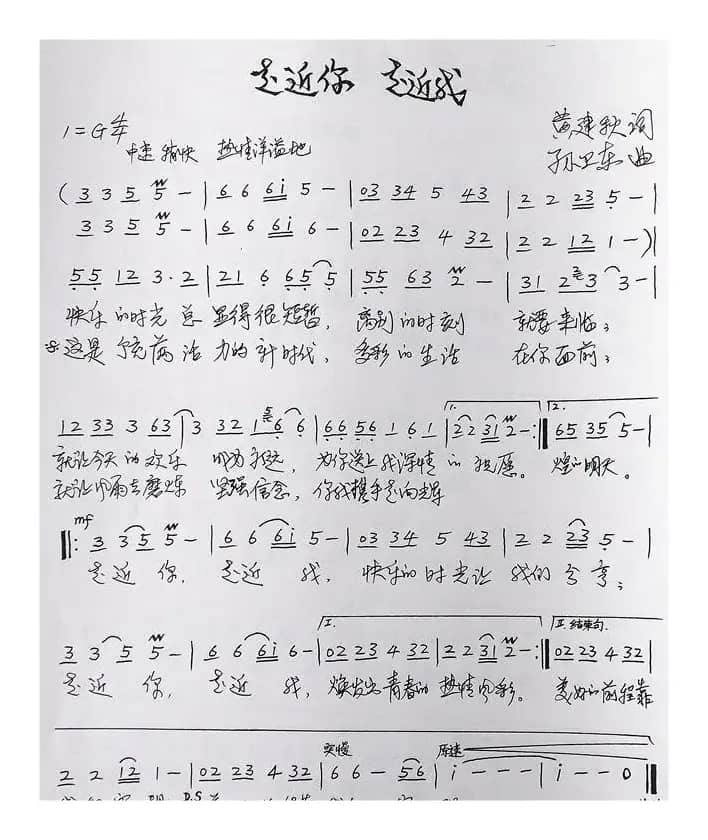 走近你 走近我
1=G 4/4
黄建秋 词
中速 稍快 热情洋溢地
孙卫东 曲
( 3 3 5 5 - | 6 6 6 i 5 - | 03 34 5 43 | 2 2 23 5 - |
3 3 5 5 - | 6 6 6 i 6 - | 02 23 4 32 | 2 2 12 1 - ) |
55 12 3·2 | 21 6 65 5 | 55 63 2 - | 31 2 3 3 - |
快乐的时光总显得很短暂, 离别的时刻 就要来临;
※这是 充满活力的新时代, 多彩的生活 在你面前;
12 33 3 63 3 32 1 6 6 | 66 56 1 6 1 | 1. 2 2 31 2 - :‖ 2. 65 35 5 - |
就让今天的欢乐 成为永远, 为你送上我深情的祝愿。 煌的明天。
就让风雨去磨炼 坚强信念, 你我携手走向辉
mf
‖: 3 3 5 5 - | 6 6 6 i 5 - | 03 34 5 43 | 2 2 23 5 - |
走近你, 走近我, 快乐的时光让我们分享;
I. II. 结束句.
3 3 5 5 - | 6 6 6 i 6 - | 02 23 4 32 | 2 2 31 2 - :‖ 02 23 4 32 |
走近你, 走近我, 焕发出青春的热情风彩。 美好的前程靠
突慢 原速
2 2 12 1 - | 02 23 4 32 | 6 6 - 56 | i - - - | i - - 0 ‖
D.S